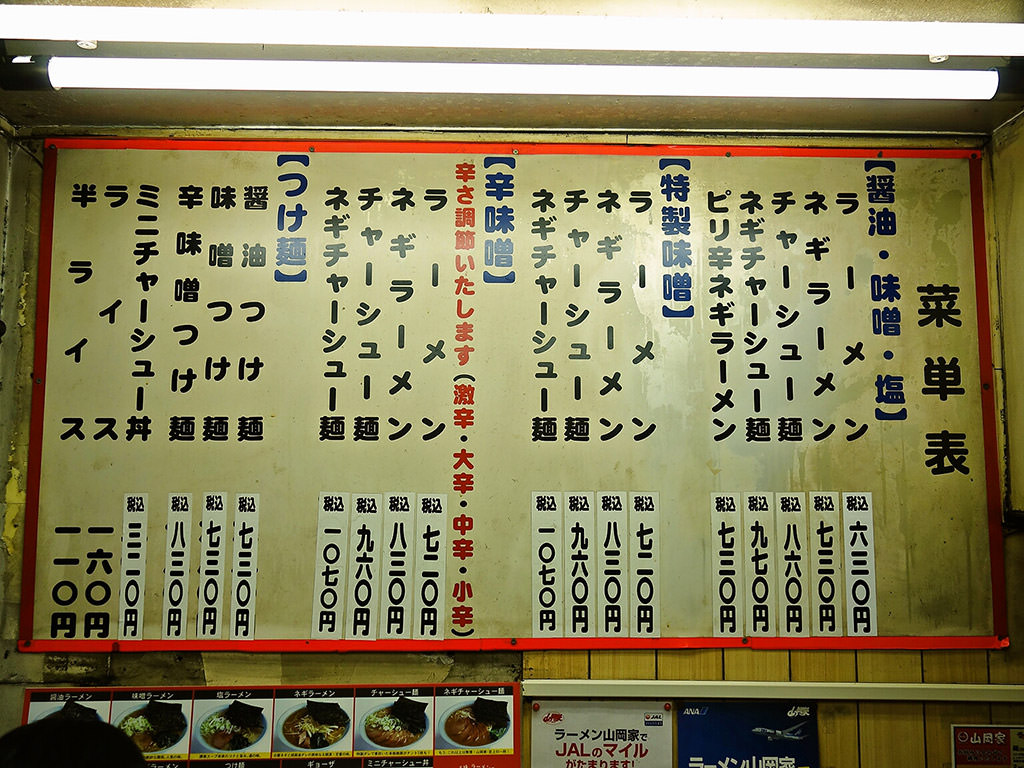 菜単表
【醤油・味噌・塩】
ラーメン 税込 六三〇円
ネギラーメン 税込 七三〇円
チャーシュー麺 税込 八六〇円
ネギチャーシュー麺 税込 九七〇円
ピリ辛ネギラーメン 税込 七三〇円
【特製味噌】
ラーメン 税込 七二〇円
ネギラーメン 税込 八三〇円
チャーシュー麺 税込 九六〇円
ネギチャーシュー麺 税込 一〇七〇円
【辛味噌】
辛さ調節いたします(激辛・大辛・中辛・小辛)
ラーメン 税込 七二〇円
ネギラーメン 税込 八三〇円
チャーシュー麺 税込 九六〇円
ネギチャーシュー麺 税込 一〇七〇円
【つけ麺】
醤油つけ麺 税込 七三〇円
味噌つけ麺 税込 七三〇円
辛味噌つけ麺 税込 八三〇円
ミニチャーシュー丼 税込 三一〇円
ライス 一六〇円
半ライス 一一〇円
醤油ラーメン
味噌ラーメン
塩ラーメン
ネギラーメン
チャーシュー麺
ネギチャーシュー麺
つけ麺
ギョーザ
ミニチャーシュー丼
JAL
ラーメン山岡家で
JALのマイル
がたまります!
ANA
ラーメン山岡家
山岡家